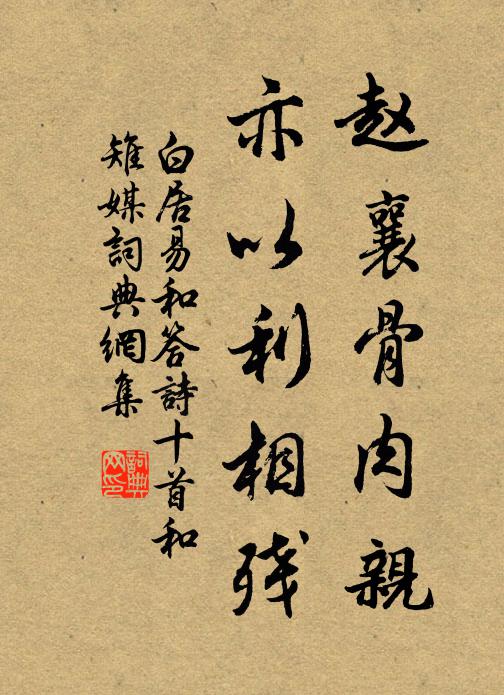 赵襄骨肉親
亦以利相残
白居易和答詩十首和
雉媒詞典網集
詞典网印